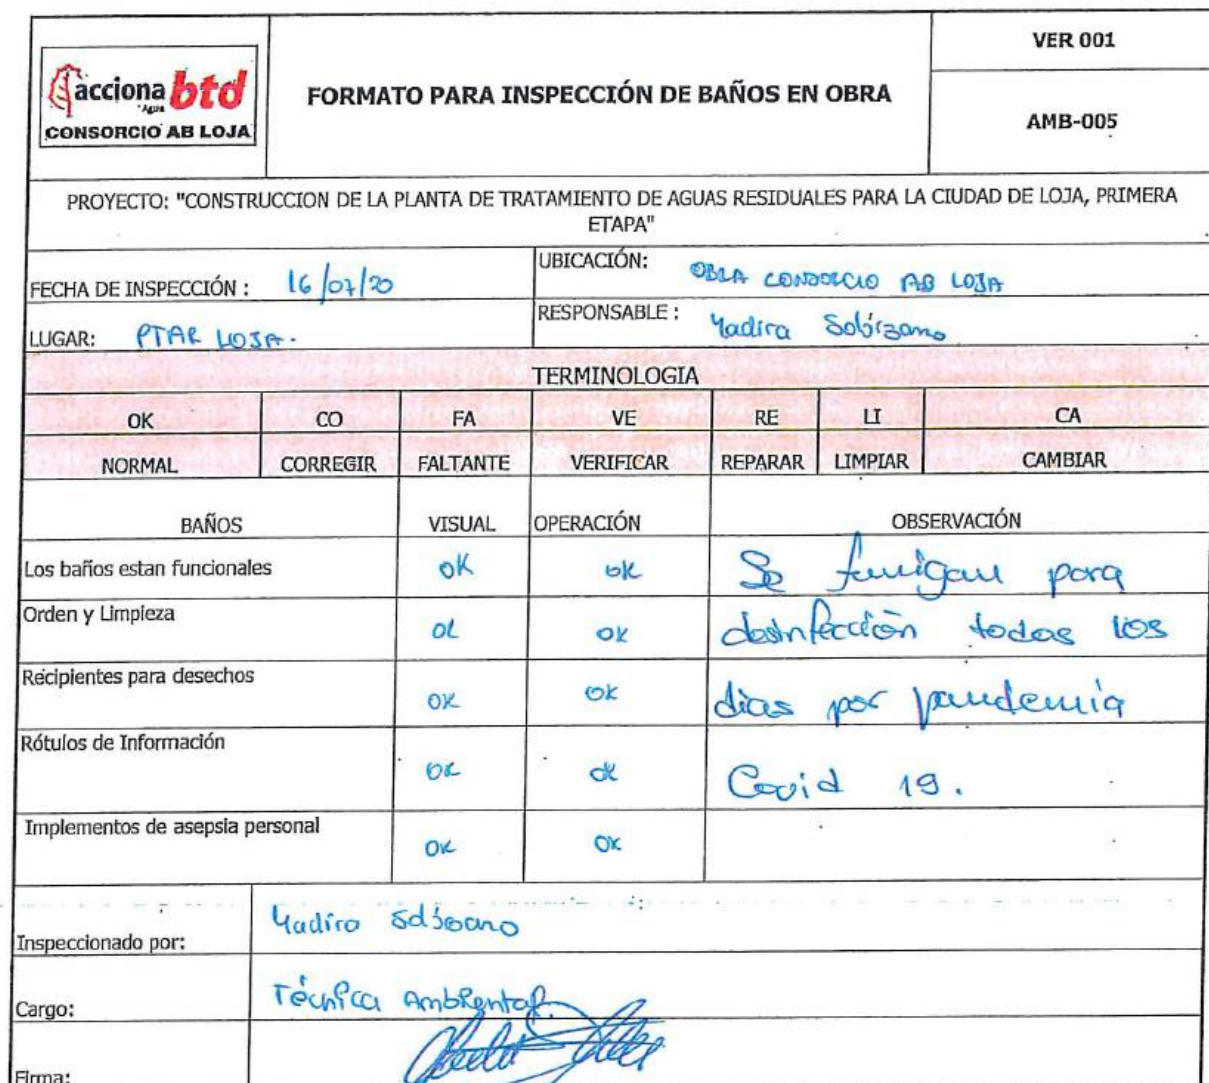 acciona btd
Agua
CONSORCIO AB LOJA
FORMATO PARA INSPECCIÓN DE BAÑOS EN OBRA
VER 001
AMB-005
PROYECTO: "CONSTRUCCION DE LA PLANTA DE TRATAMIENTO DE AGUAS RESIDUALES PARA LA CIUDAD DE LOJA, PRIMERA
ETAPA"
FECHA DE INSPECCIÓN : 16/07/20
UBICACIÓN: OBRA CONSORCIO AB LOJA
LUGAR: PTAR LOJA.
RESPONSABLE : Yadira
TERMINOLOGIA
OK CO FA VE RE LI CA
NORMAL CORREGIR FALTANTE VERIFICAR REPARAR LIMPIAR CAMBIAR
BAÑOS VISUAL OPERACIÓN OBSERVACIÓN
Los baños estan funcionales OK OK Se fumigan para
Orden y Limpieza OK OK desinfección todos los
Recipientes para desechos OK OK dias por pandemia
Rótulos de Información OK OK Covid 19.
Implementos de asepsia personal OK OK
Inspeccionado por: Yadira
Cargo: Técnica Ambiental.
Firma: